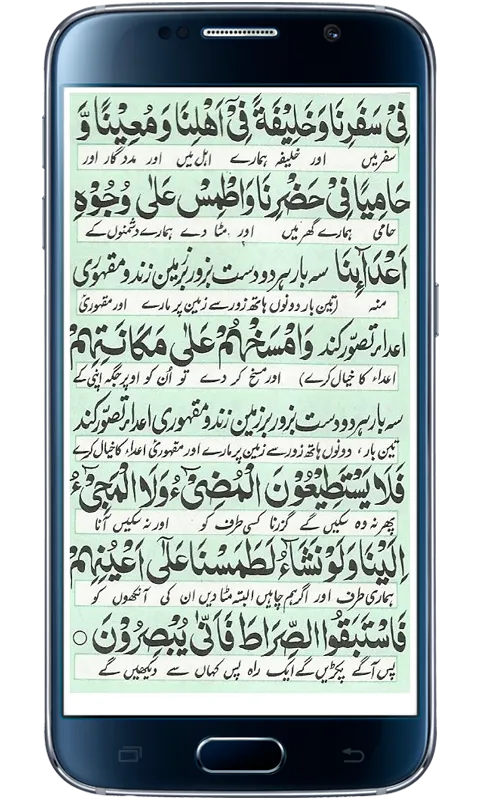 فِیْ سَفَرِنَا وَخَلِیْفَةً فِیْٓ اَهْلِنَا وَمُعِیْنًا وَّ
سفر میں اور خلیفہ ہمارے اہل میں اور مدد گار اور
حَامِیًا فِیْ حَضَرِنَا وَاطْمِسْ عَلٰی وُجُوْهِ
حامی ہمارے گھر میں اور مٹا دے ہمارے دشمنوں کے
اَعْدَآئِنَا سہ بار ہر دو دست بزور بزمین زند و مقہوری
منہ (تین بار دونوں ہاتھ زور سے زمین پر مارے اور مقہوری
اعداء تصور کند وَامْسَخْهُمْ عَلٰی مَکَانَتِهِمْ
اعداء کا خیال کرے) اور مسخ کر دے تو اُن کو اوپر جگہ اپنی کے
سہ بار ہر دو دست بزور بزمین زند و مقہوری اعداء تصور کند
تین بار، دونوں ہاتھ زور سے زمین پر مارے اور مقہوری اعداء کا خیال کرے
فَلَا یَسْتَطِیْعُوْنَ الْمُضِیَّءُ وَلَا الْمَجِیْٓءُ
پھر نہ وہ سکیں گے گزرنا کسی طرف کو اور نہ سکیں آنا
اِلَیْنَا وَلَوْ نَشَآءُ لَطَمَسْنَا عَلٰٓی اَعْیُنِهِمْ
ہماری طرف اور اگر ہم چاہیں البتہ مٹا دیں ان کی آنکھوں کو
فَاسْتَبَقُوا الصِّرَاطَ فَاَنّٰی یُبْصِرُوْنَ ○
پس آگے پکڑیں گے ایک راہ پس کہاں سے دیکھیں گے